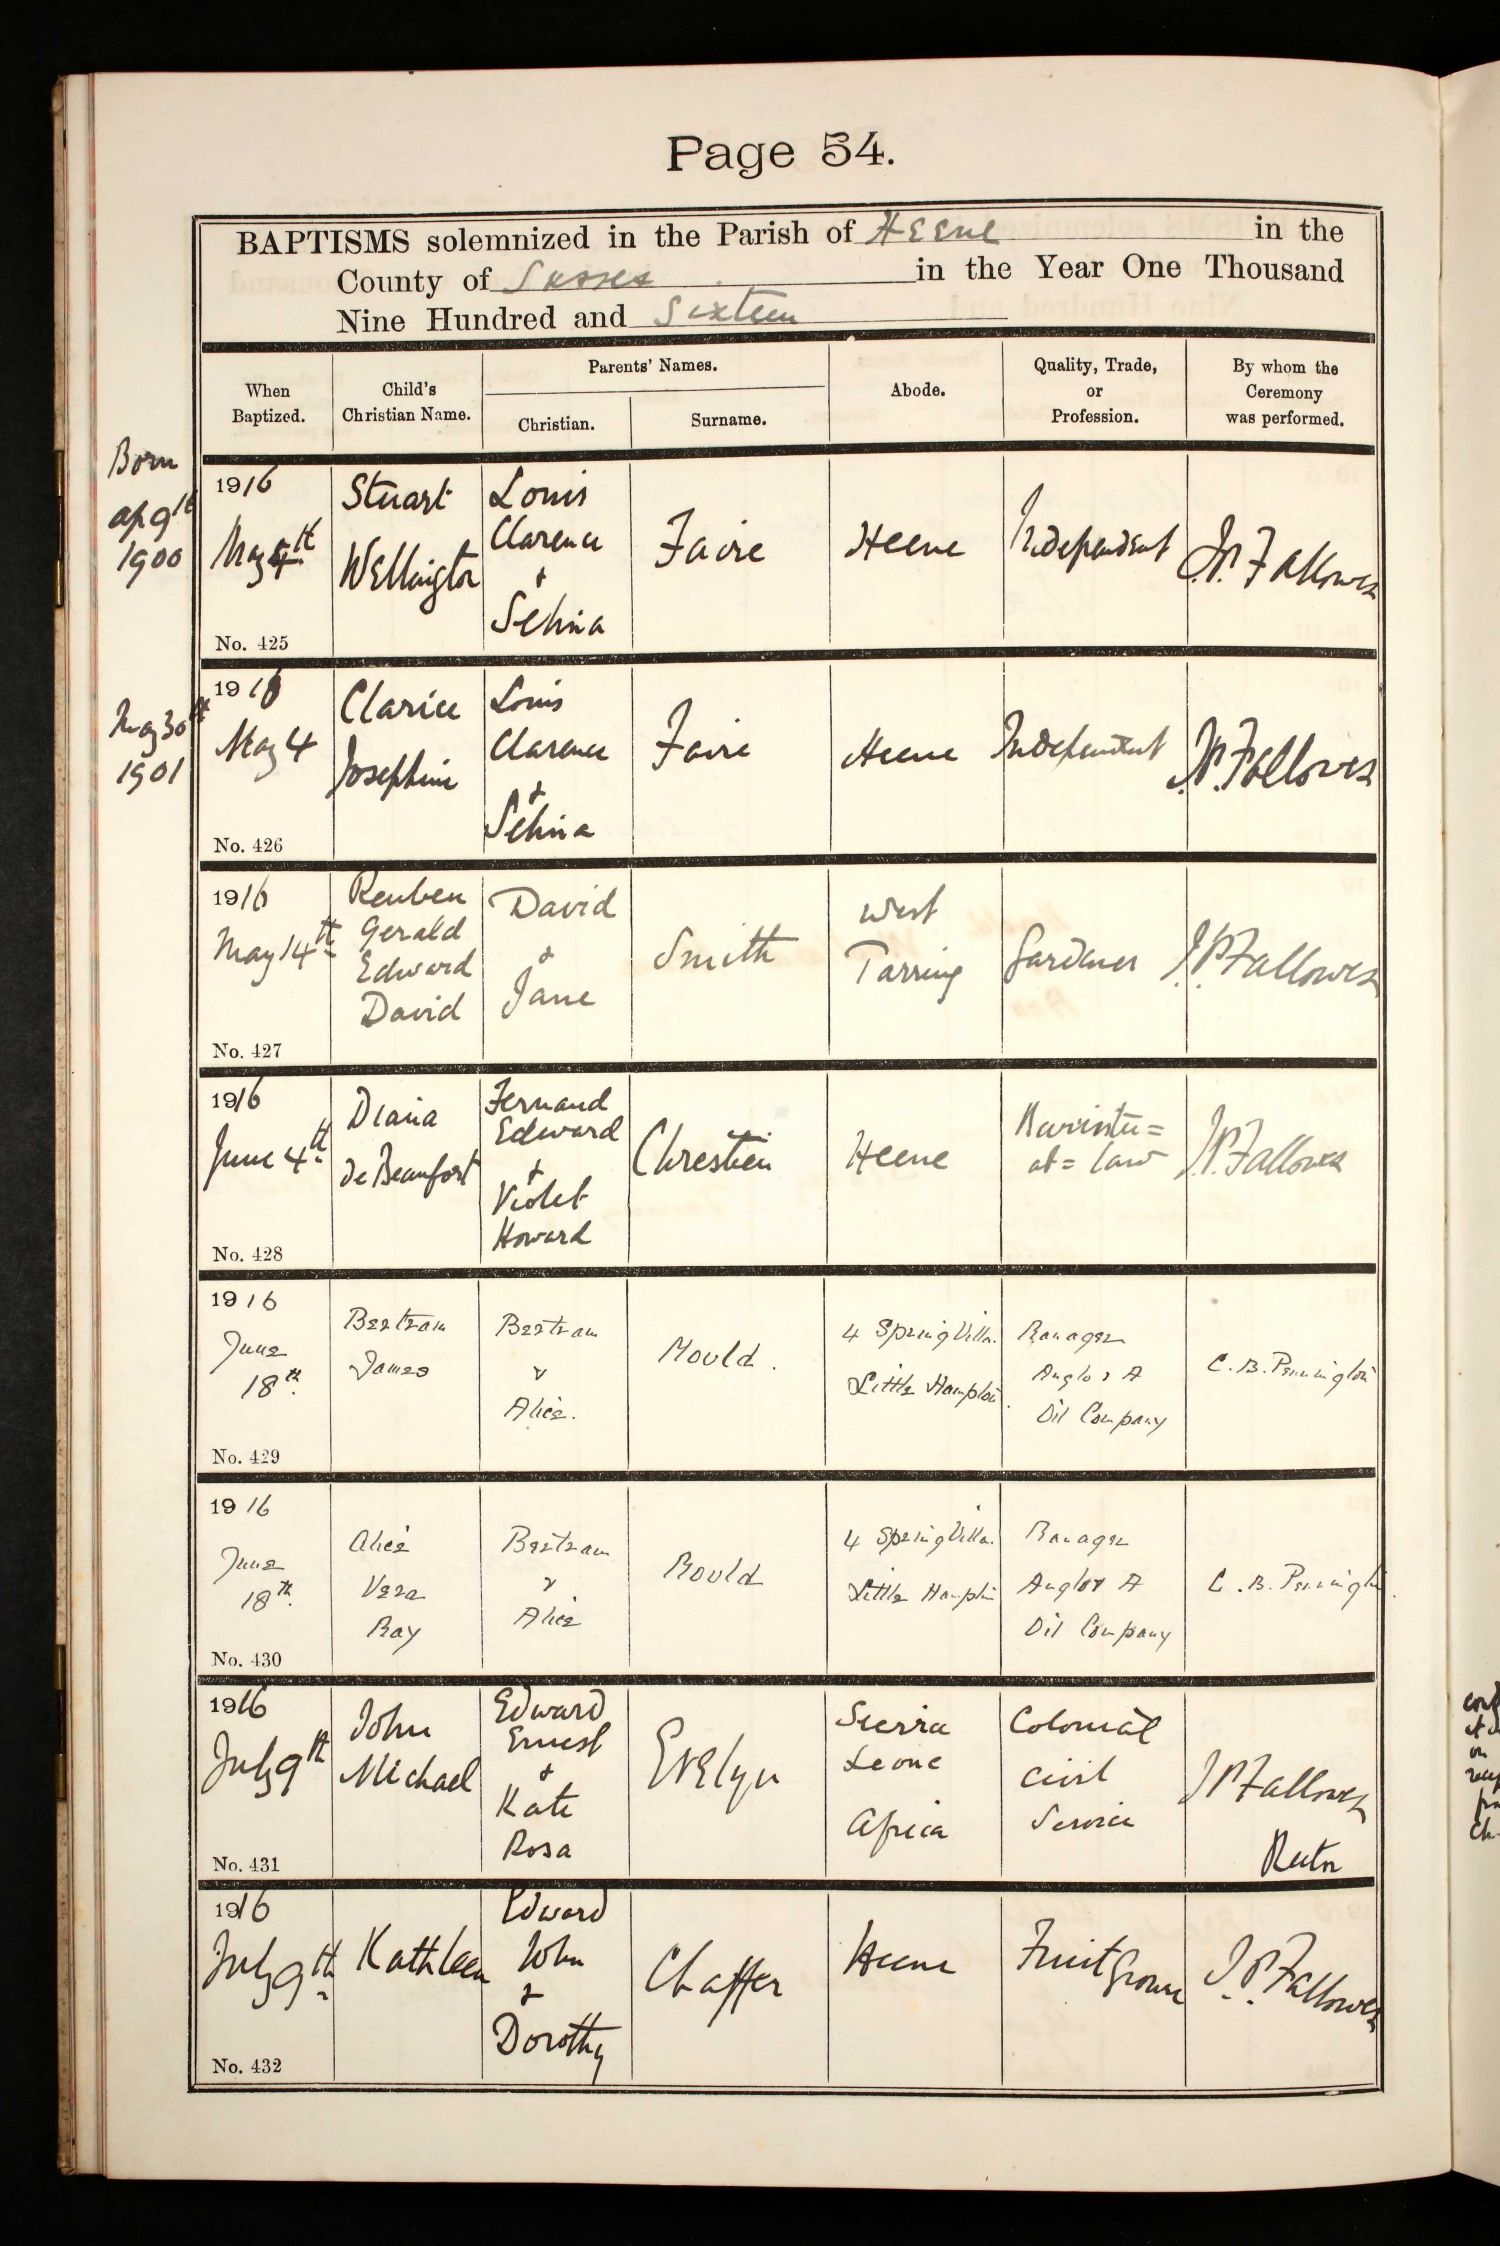 Page 54.
BAPTISMS solemnized in the Parish of Heene in the
County of Sussex in the Year One Thousand
Nine Hundred and Sixteen
When
Baptized.
Child's
Christian Name.
Parents' Names.
Christian.
Surname.
Abode.
Quality, Trade,
or
Profession.
By whom the
Ceremony
was performed.
Born
Ap 9th
1900
1916
May 4th
No. 425
Stuart
Wellington
Louis
Clarence
&
Selina
Faire
Heene
Independent
J.P. Fallowes
May 30th
1901
1916
May 4
No. 426
Clarice
Josephine
Louis
Clarence
&
Selina
Faire
Heene
Independent
J.P. Fallowes
1916
May 14th
No. 427
Reuben
Gerald
Edward
David
David
&
Jane
Smith
West
Tarring
Gardener
J.P. Fallowes
1916
June 4th
No. 428
Diana
de Beaufort
Fernand
Edward
&
Violet
Howard
Chrestien
Heene
Barrister=
at=law
J.P. Fallowes
1916
June
18th.
No. 429
Bertram
James
Bertram
&
Alice.
Mould.
4 Spring Villa.
Little Hampton.
Manager
Anglo & A
Oil Company
C. B. Pennington
1916
June
18th.
No. 430
Alice
Vera
May
Bertram
&
Alice
Mould
4 Spring Villa.
Little Hampton
Manager
Anglo & A
Oil Company
C. B. Pennington
1916
July 9th
No. 431
John
Michael
Edward
Ernest
&
Kate
Rosa
Evelyn
Sierra
Leone
Africa
Colonial
Civil
Service
J P Fallowes
Rector
1916
July 9th
No. 432
Kathleen
Edward
John
&
Dorothy
Chaffer
Heene
Fruit Grower
J.P. Fallowes